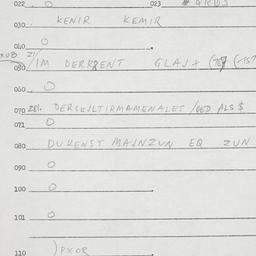 022 O 023 # QRDS
030 KENIR KEMIR
040 O
050 /IM DERRENT GLAJX
060 O
070 28% DERSUILTIRMAMENALET / GED ALS $
071 O
080 DUKENST MAJNZUN EQ ZUN
090 O
100 O
101 O
110 )PXOR